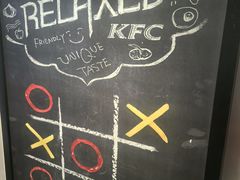 RELAXED
FRIENDLY KFC
UNIQUE
TASTE
O
X
X O